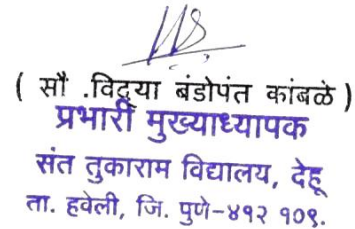 ( सौ .विद्या बंडोपंत कांबळे )
प्रभारी मुख्याध्यापक
संत तुकाराम विद्यालय, देहू
ता. हवेली, जि. पुणे-४१२ १०९.